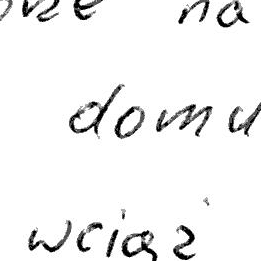 na
domu
wciąż